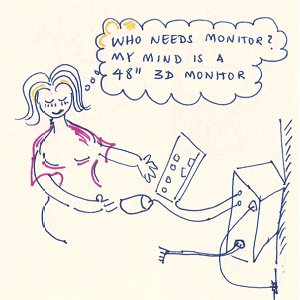 WHO NEEDS MONITOR?
MY MIND IS A
48" 3D MONITOR